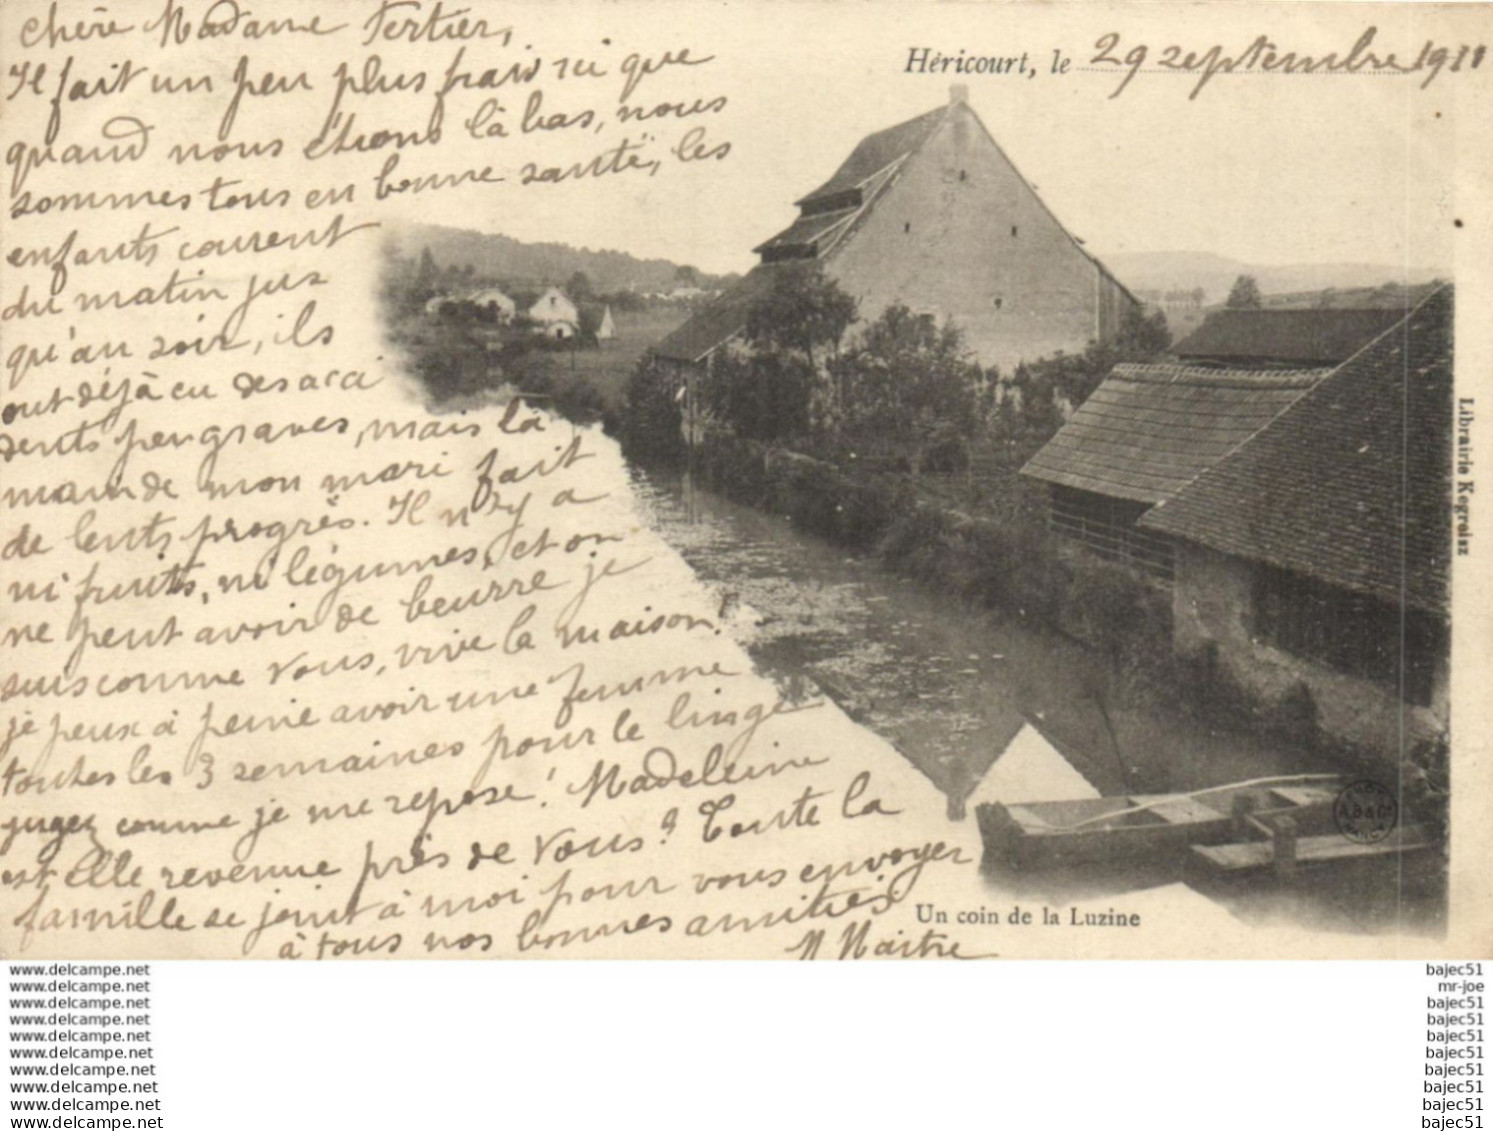 Chère Madame Tertier,
Il fait un peu plus frais ici que
quand nous étions là bas, nous
sommes tous en bonne santé, les
enfants courent
du matin jus
qu'au soir, ils
ont déjà eu des acci
dents peu graves, mais la
main de mon mari fait
de lents progrès. Il n'y a
ni fruits, ni légumes, et on
ne peut avoir de beurre je
suis comme vous, vive la maison!
je peux à peine avoir une femme
toutes les 3 semaines pour le linge
jugez comme je me repose! Madeleine
est elle revenue près de vous? Toute la
famille se joint à moi pour vous envoyer
à tous nos bonnes amitiés
M Maitre
Héricourt, le 29 septembre 1911
Librairie Kegreisz
Un coin de la Luzine
www.delcampe.net bajec51
www.delcampe.net mr-joe
www.delcampe.net bajec51
www.delcampe.net bajec51
www.delcampe.net bajec51
www.delcampe.net bajec51
www.delcampe.net bajec51
www.delcampe.net bajec51
www.delcampe.net bajec51
www.delcampe.net bajec51